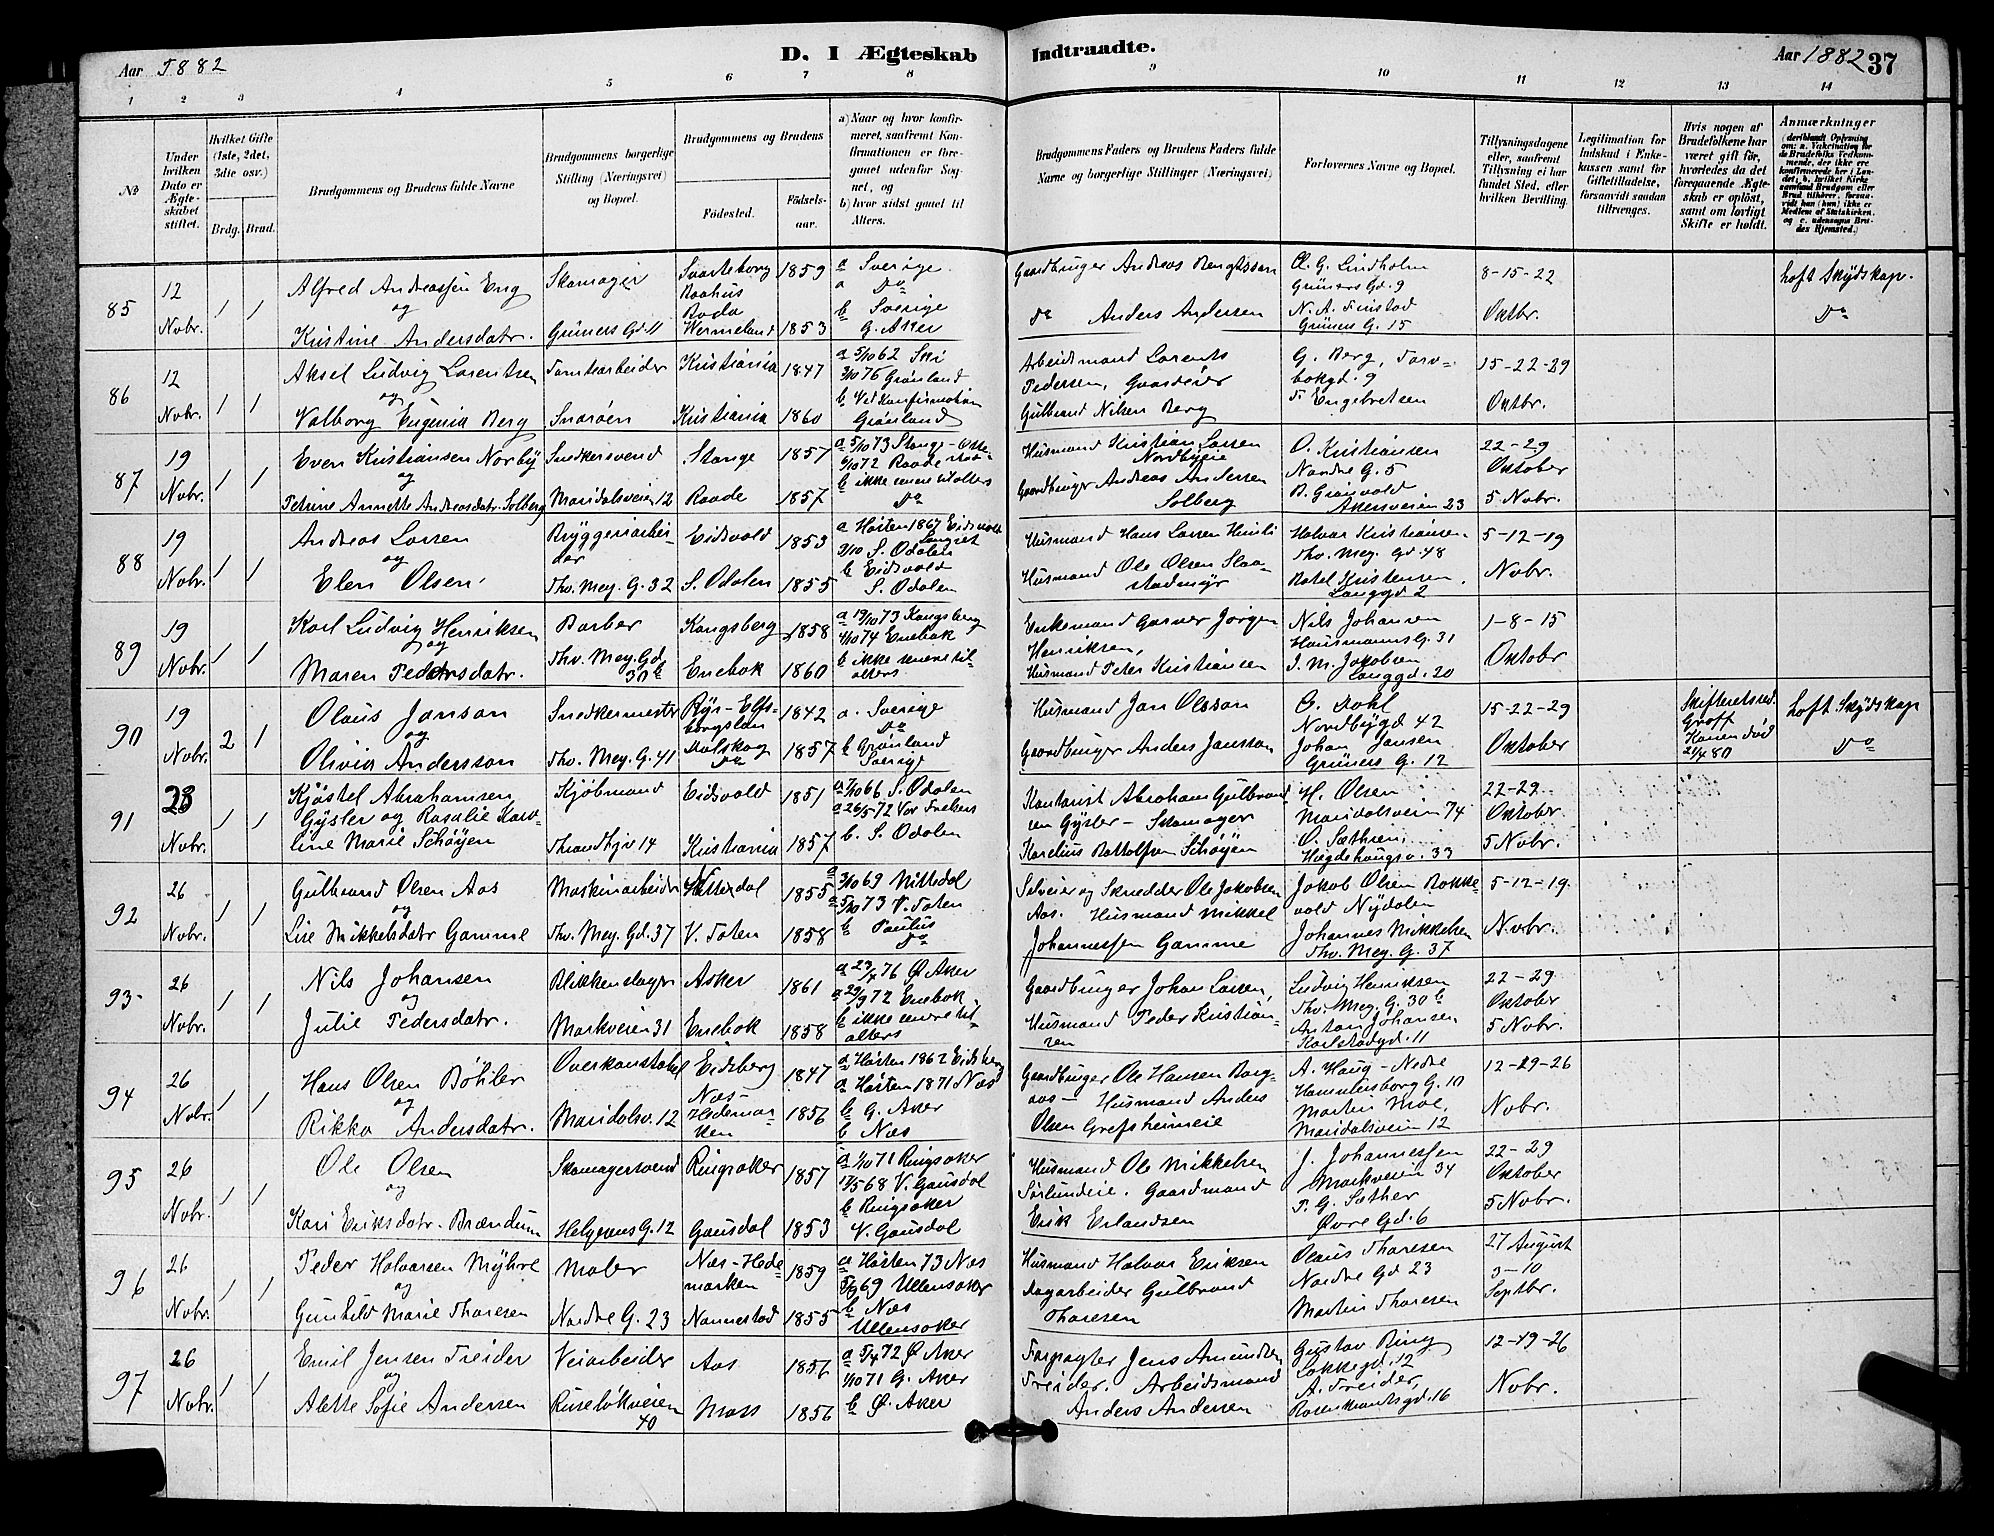 Aar 1882
D. I Ægteskab
Indtraadte.
Aar 1882
37
1 2 3 4 5 6 7 8 9 10 11 12 13 14
No
Under hvilken Dato er Ægteskabet stiftet.
Hvilket Gifte (1ste, 2det, 3die osv.)
Brdg. Brud.
Brudgommens og Brudens fulde Navne
Brudgommens borgerlige Stilling (Næringsvei) og Bopæl.
Brudgommens og Brudens
Fødested.
Fødselsaar.
a) Naar og hvor konfirmeret, saafremt Konfirmationen er foregaaet udenfor Sognet, og
b) hvor sidst gaaet til Alters.
Brudgommens Faders og Brudens Faders fulde Navne og borgerlige Stillinger (Næringsvei)
Forlovernes Navne og Bopæl.
Tillysningsdagene eller, saafremt Tillysning ei har fundet Sted, efter hvilken Bevilling.
Legitimation for Indskud i Enkekassen samt for Giftetilladelse, forsaavidt saadan tiltrænges.
Hvis nogen af Brudefolkene har været gift før, hvorledes da det foregaaende Ægteskab er opløst, samt om lovligt Skifte er holdt.
Anmærkninger
(deriblandt Oplysning om: a. Vakcination for de Brudefolks Vedkommende, der ikke ere konfirmerede her i Landet; b. hvilket Kirkesamfund Brudgom eller Brud tilhører, forsaavidt han (hun) ikke er Medlem af Statskirken, og c. udensogns Brudes Hjemsted.)
85
12 Nvbr. 1 1
Alfred Andreassen Eng
og
Kristine Andersdatr.
Skomager
Grüners Gd 11
Svarteborg Baahus
Boda Wermeland
1859
1853
a Sverige
a Do
b Sverige
G. Aker
Gaardbruger Andreas Bengtsson
Do Anders Andersen
Cl. G. Lindholm
Grüners Gd. 9
N. A. Finstad
Grüners G. 15
8-15-22
Oktbr.
Loft. Skydskap.
Do
86
12 Nvbr. 1 1
Aksel Ludvig Lorentsen
og
Valborg Eugenia Berg
Tomtearbeider
Snarøen
Kristiania
Kristiania
1847
1860
a 5/10 62 Ski
3/10 75 Grønland
b Ved Konfirmation
Grønland
Arbeidsmand Lorents
Pedersen, Gaardeier
Gulbrand Nilsen Berg
G. Berg, Torvbakgd. 9
F. Engebretsen
15-22-29
Oktbr.
87
19 Nvbr. 1 1
Even Kristiansen Norby
og
Petrine Annette Andreasdatr. Solberg
Snedkersvend
Maridalsveien 12
Stange
Raade
1857
1857
a 5/10 73 Stange
6/10 72 Raade
b ikke senere til alters
Do
Husmand Kristian Larsen
Nordbyeie
Gaardbruger Andreas Andersen
Solberg
O. Kristiansen
Nordre G. 5
B. Grønvold
Akersveien 23
22-29
Oktober
5 Nvbr.
88
19 Nvbr. 1 1
Andreas Larsen
og
Elen Olsen
Bryggeriarbeider
Thv. Mey. G. 32
Eidsvold
S. Odalen
1853
1855
a Høsten 1867 Eidsvold Langset
S. Odalen
b Eidsvold
S. Odalen
Husmand Hans Larsen
Husmand Ole Olsen Slaastadmyr
Halvor Kristiansen
Thv. Mey. Gd. 48
Botel Kristensen
Langgd 2
5-12-19
Nvbr.
89
19 Nvbr. 1 1
Karl Ludvig Henriksen
og
Maren Pedersdatr.
Barber
Thv. Mey. Gd. 30b
Kongsberg
Enebak
1858
1860
a 19/10 73 Kongsberg
4/10 74 Enebak
b ikke senere til alters
Enkemand Garver Jørgen
Henriksen,
Husmand Peter Kristiansen
Nils Johansen
Hausmanns G. 31
I. M. Jakobsen
Langgd. 20
1-8-15
Oktober
90
19 Nvbr. 2 1
Olaus Janson
og
Olivia Andersson
Snedkermester
Thv. Mey. G. 41
Ryr-Elfsborgslän
Dalskog Do
1842
1857
a. Sverige
Do
b Grønland
Sverige
Husmand Jan Olsson
Gaardbruger Anders Jansson
C. Dahl
Nordbygd 42
Johan Jansen
Grüners G. 12
15-22-29
Oktober
Skifteretssed.
Groft
Konen død
21/4 80
Loft. Skydskap
Do
91
28 Nvbr. 1 1
Kjøstel Abrahamsen
Gysler og Rosalie Karoline Marie Schøyen
Kjøbmand
Throndhjv 14
Eidsvold
Kristiania
1851
1857
a 7/10 66 S. Odalen
a 26/5 72 Vor Frelsers
b. S. Odalen
Kontorist Abraham Gulbrandsen Gysler - Skomager
Karelius Rottolfsen Schøyen
H. Olsen
Maridalsveien 74
O. Sæthren,
Hægdehaugsv. 33
22-29
Oktober.
5 Nvbr.
92
26 Nvbr. 1 1
Gulbrand Olsen Aas
og
Lise Mikkelsdatr Gamme
Maskinarbeider
Thv. Mey. Gd. 37
Nittedal
V. Toten
1855
1858
a 3/10 69 Nittedal
a 5/10 73 V. Toten
b Paulus
Do
Selveier og Skredder Ole Jakobsen
Aas. Husmand Mikkel
Johannessen Gamme
Jakob Olsen Bokkevold Nydalen
Johannes Mikkelsen
Thv. Mey. G. 37
5-12-19
Nvbr.
93
26 Nvbr. 1 1
Nils Johansen
og
Julie Pedersdatr.
Blikkenslager
Markveien 31
Asker
Enebak
1861
1858
a 23/4 76 Ø. Aker
a 29/9 72 Enebak
b ikke senere til alters
Gaardbruger Johan Larsen,
Husmand Peder Kristiansen
Ludvig Henriksen
Thv. Mey. G. 30b
Anton Johansen
Karlstadgd. 11
22-29
Oktober
5 Nvbr.
94
26 Nvbr. 1 1
Hans Olsen Bøhler
og
Rikka Andersdatr.
Overkonstabel
Maridalsv. 12
Eidsberg
Næs-Hedemarken
1847
1856
a Høsten 1862 Eidsberg
a Høsten 1871 Næs
b G. Aker
b Næs
Gaardbruger Ole Hansen Borgaas - Husmand Anders
Olsen Grefsheimeie
A. Haug - Nedre
Hammersborg G. 10
Martin Moe,
Maridalsveien 12
12-19-26
Nvbr.
95
26 Nvbr. 1 1
Ole Olsen
og
Kari Eriksdatr. Brændum
Skomagersvend
Helgesens G. 12
Ringsaker
Gausdal
1857
1853
a 1/10 71 Ringsaker
17/5 68 V. Gausdal
b Ringsaker
V. Gausdal
Husmand Ole Mikkelsen
Sørlundeie. Gaardmand
Erik Erlandsen
J. Johannessen
Markveien 34
P. G. Sæther
Øvre Gd. 6
22-29
Oktober
5 Nvbr.
96
26 Nvbr. 1 1
Peder Halvorsen Myhre
og
Gunhild Marie Thoresen
Maler
Nordre G. 23
Næs-Hedemarken
Nannestad
1859
1855
a Høsten 73 Næs
5/9 69 Ullensaker
b Næs
Ullensaker
Husmand Halvor Eriksen
Dagarbeider Gulbrand
Thoresen
Olaus Thoresen
Nordre Gd 23
Martin Thoresen
27 August
3-10
Septbr.
97
26 Nvbr. 1 1
Emil Jensen Treider
og
Alette Sofie Andersen
Veiarbeider
Ruseløkveien 40
Aas
Moss
1856
1856
a 5/4 72 Ø. Aker
1/10 71 G. Aker
b Ø. Aker
Forpagter Jens Amundsen
Treider. Arbeidsmand
Anders Andersen
Gustav Ring
Løkkegd. 12
A. Treider,
Rosenkrantsgd. 16
12-19-26
Nvbr.